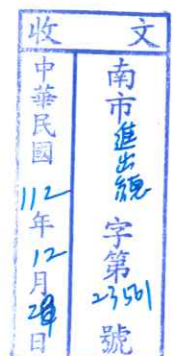 收文
南市進出總字第23561號
中華民國112年12月28日